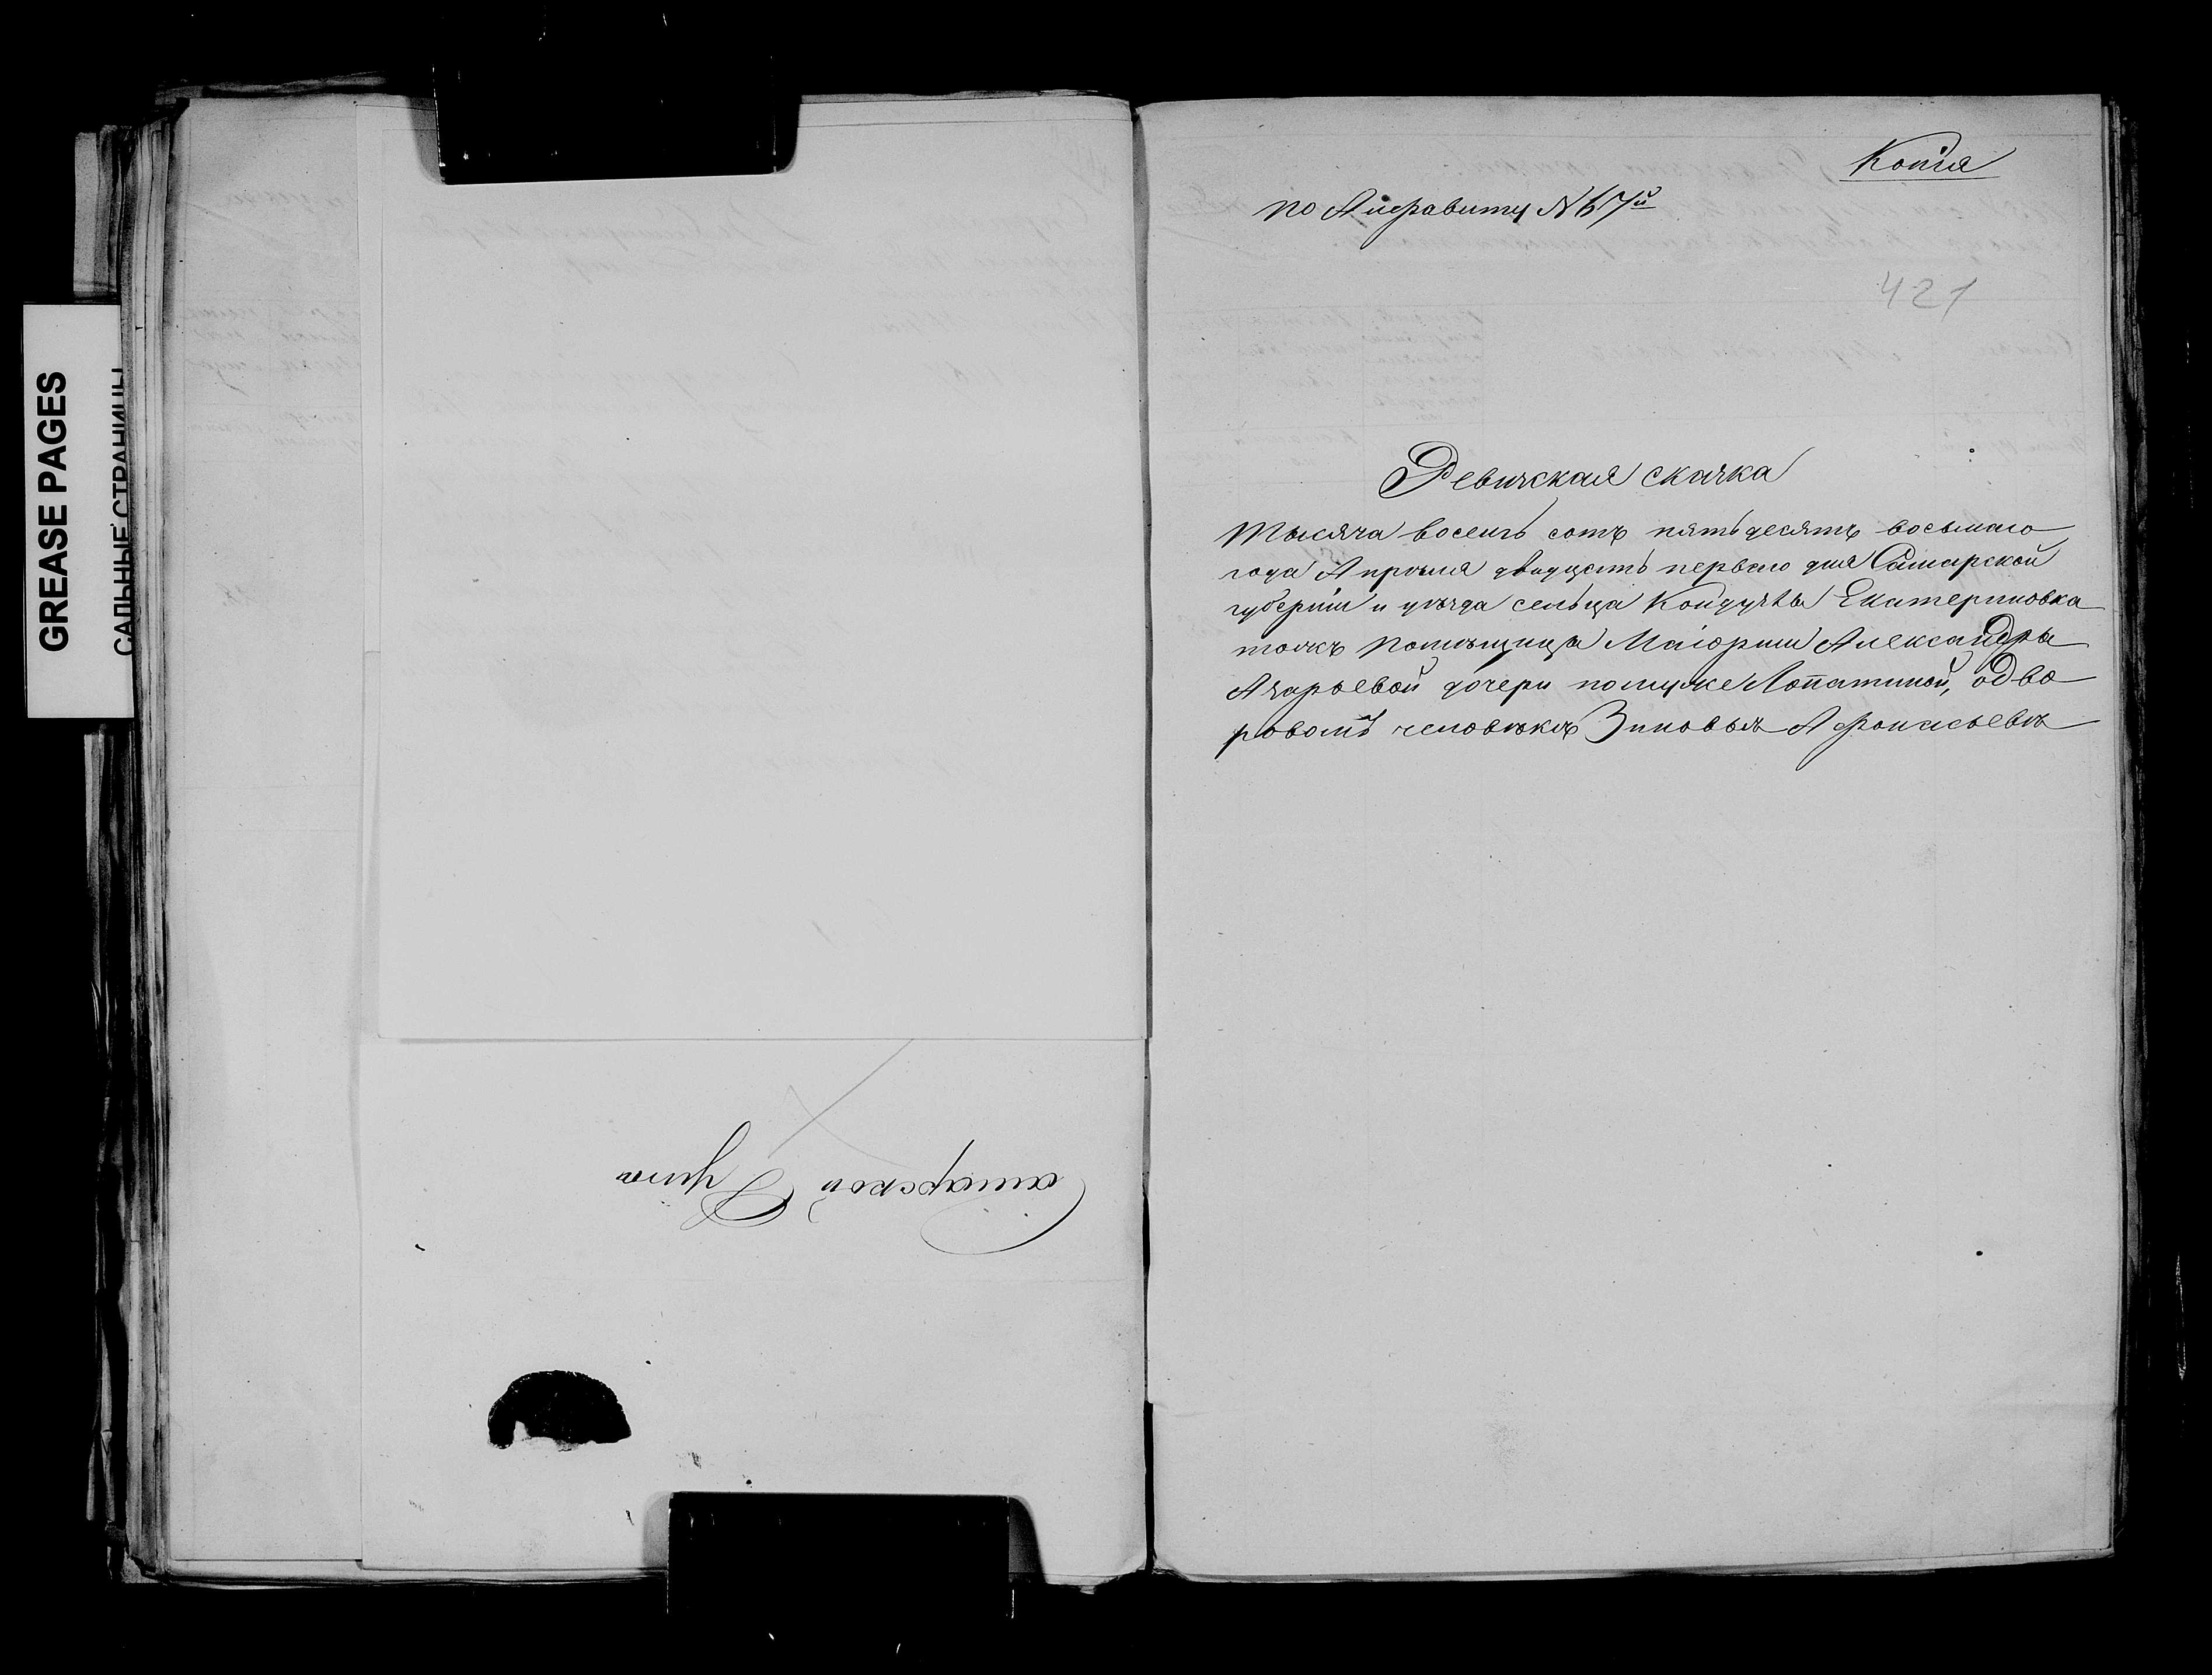 GREASE PAGES
САЛЬНЫЕ СТРАНИЦЫ
Самарской Дума
Копія
по Алфавиту № 67й
421
Ревижская скажка
Тысяча восемь сотъ пятьдесятъ восьмаго
года Апрѣля двадцать перваго дня Самарской
губерніи и уѣзда сельца Кондурчы Екатериновка
тожъ помѣщицы Маіорши Александры
Азарьевой дочери помужже Лопатиной, одво
ровомъ человѣкѣ Зиновьѣ Афонасьевѣ